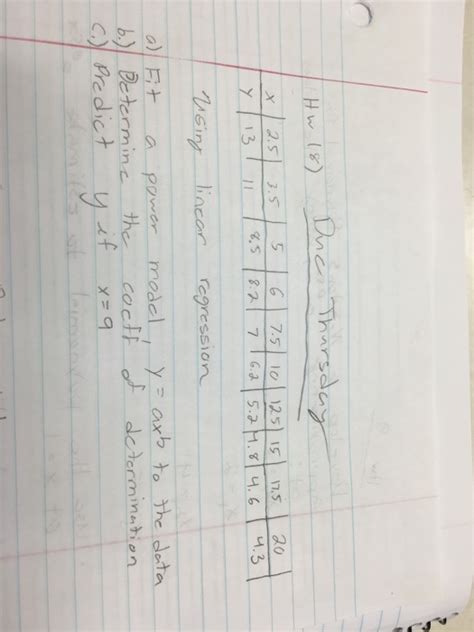 Hw (8) Due Thursday
x | 2.5 | 3.5 | 5 | 6 | 7.5 | 10 | 12.5 | 15 | 17.5 | 20
y | 13 | 11 | 8.5 | 8.2 | 7 | 6.2 | 5.2 | 4.8 | 4.6 | 4.3
Using linear regression
a) Fit a power model y = axb to the data
b.) Determine the coeff of determination
c.) Predict y if x=9